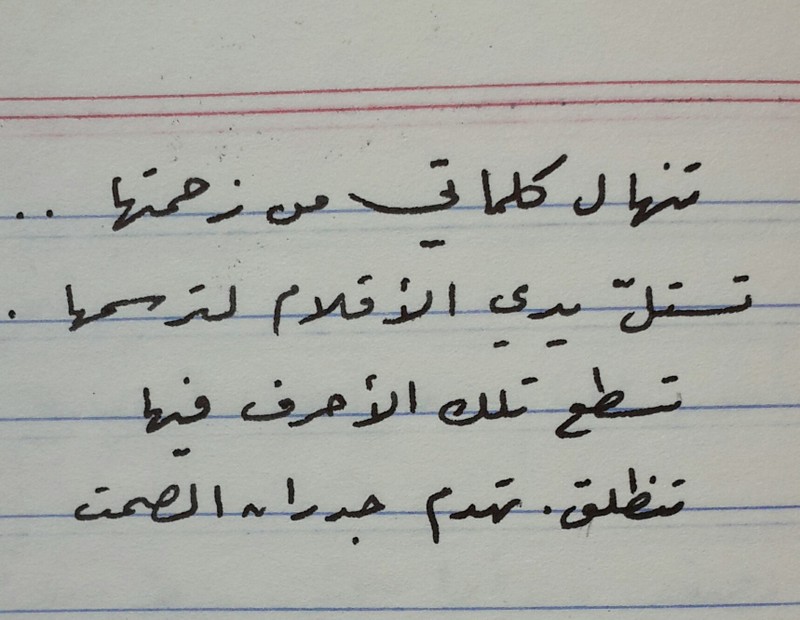 تنهال كلماتي من زحمتها ..
تستلّ يدي الأقلام لترسمها .
تسطع تلك الأحرف فيها
تنطلق. تهدم جدران الصمت